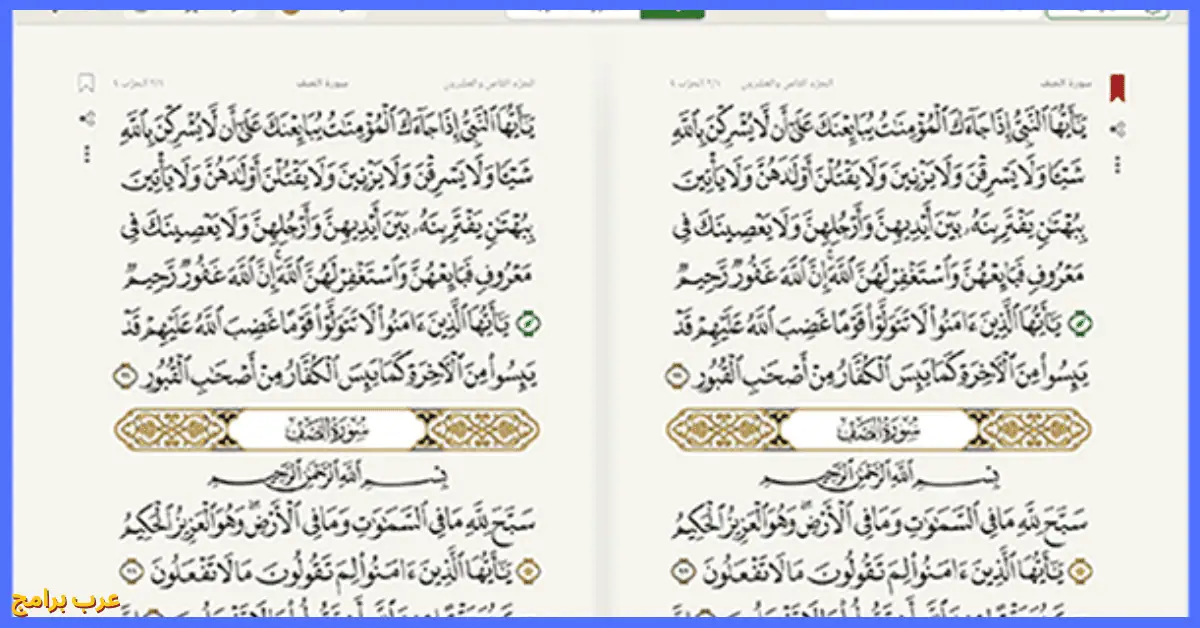 سورة الصف
الجزء الثامن والعشرين
يَـٰٓأَيُّهَا ٱلنَّبِىُّ إِذَا جَآءَكَ ٱلْمُؤْمِنَـٰتُ يُبَايِعْنَكَ عَلَىٰٓ أَن لَّا يُشْرِكْنَ بِٱللَّهِ
شَيْـًٔا وَلَا يَسْرِقْنَ وَلَا يَزْنِينَ وَلَا يَقْتُلْنَ أَوْلَـٰدَهُنَّ وَلَا يَأْتِينَ
بِبُهْتَـٰنٍ يَفْتَرِينَهُۥ بَيْنَ أَيْدِيهِنَّ وَأَرْجُلِهِنَّ وَلَا يَعْصِينَكَ فِى
مَعْرُوفٍ فَبَايِعْهُنَّ وَٱسْتَغْفِرْ لَهُنَّ ٱللَّهَ إِنَّ ٱللَّهَ غَفُورٌ رَّحِيمٌ
يَـٰٓأَيُّهَا ٱلَّذِينَ ءَامَنُوا۟ لَا تَتَوَلَّوْا۟ قَوْمًا غَضِبَ ٱللَّهُ عَلَيْهِمْ قَدْ
يَئِسُوا۟ مِنَ ٱلْـَٔاخِرَةِ كَمَا يَئِسَ ٱلْكُفَّارُ مِنْ أَصْحَـٰبِ ٱلْقُبُورِ
سُورَةُ الصَّفِّ
بِسْمِ ٱللَّهِ ٱلرَّحْمَـٰنِ ٱلرَّحِيمِ
سَبَّحَ لِلَّهِ مَا فِى ٱلسَّمَـٰوَٰتِ وَمَا فِى ٱلْأَرْضِ وَهُوَ ٱلْعَزِيزُ ٱلْحَكِيمُ
يَـٰٓأَيُّهَا ٱلَّذِينَ ءَامَنُوا۟ لِمَ تَقُولُونَ مَا لَا تَفْعَلُونَ
الجزء الثامن والعشرين
سورة الصف
يَـٰٓأَيُّهَا ٱلنَّبِىُّ إِذَا جَآءَكَ ٱلْمُؤْمِنَـٰتُ يُبَايِعْنَكَ عَلَىٰٓ أَن لَّا يُشْرِكْنَ بِٱللَّهِ
شَيْـًٔا وَلَا يَسْرِقْنَ وَلَا يَزْنِينَ وَلَا يَقْتُلْنَ أَوْلَـٰدَهُنَّ وَلَا يَأْتِينَ
بِبُهْتَـٰنٍ يَفْتَرِينَهُۥ بَيْنَ أَيْدِيهِنَّ وَأَرْجُلِهِنَّ وَلَا يَعْصِينَكَ فِى
مَعْرُوفٍ فَبَايِعْهُنَّ وَٱسْتَغْفِرْ لَهُنَّ ٱللَّهَ إِنَّ ٱللَّهَ غَفُورٌ رَّحِيمٌ
يَـٰٓأَيُّهَا ٱلَّذِينَ ءَامَنُوا۟ لَا تَتَوَلَّوْا۟ قَوْمًا غَضِبَ ٱللَّهُ عَلَيْهِمْ قَدْ
يَئِسُوا۟ مِنَ ٱلْـَٔاخِرَةِ كَمَا يَئِسَ ٱلْكُفَّارُ مِنْ أَصْحَـٰبِ ٱلْقُبُورِ
سُورَةُ الصَّفِّ
بِسْمِ ٱللَّهِ ٱلرَّحْمَـٰنِ ٱلرَّحِيمِ
سَبَّحَ لِلَّهِ مَا فِى ٱلسَّمَـٰوَٰتِ وَمَا فِى ٱلْأَرْضِ وَهُوَ ٱلْعَزِيزُ ٱلْحَكِيمُ
يَـٰٓأَيُّهَا ٱلَّذِينَ ءَامَنُوا۟ لِمَ تَقُولُونَ مَا لَا تَفْعَلُونَ
عرب برامج